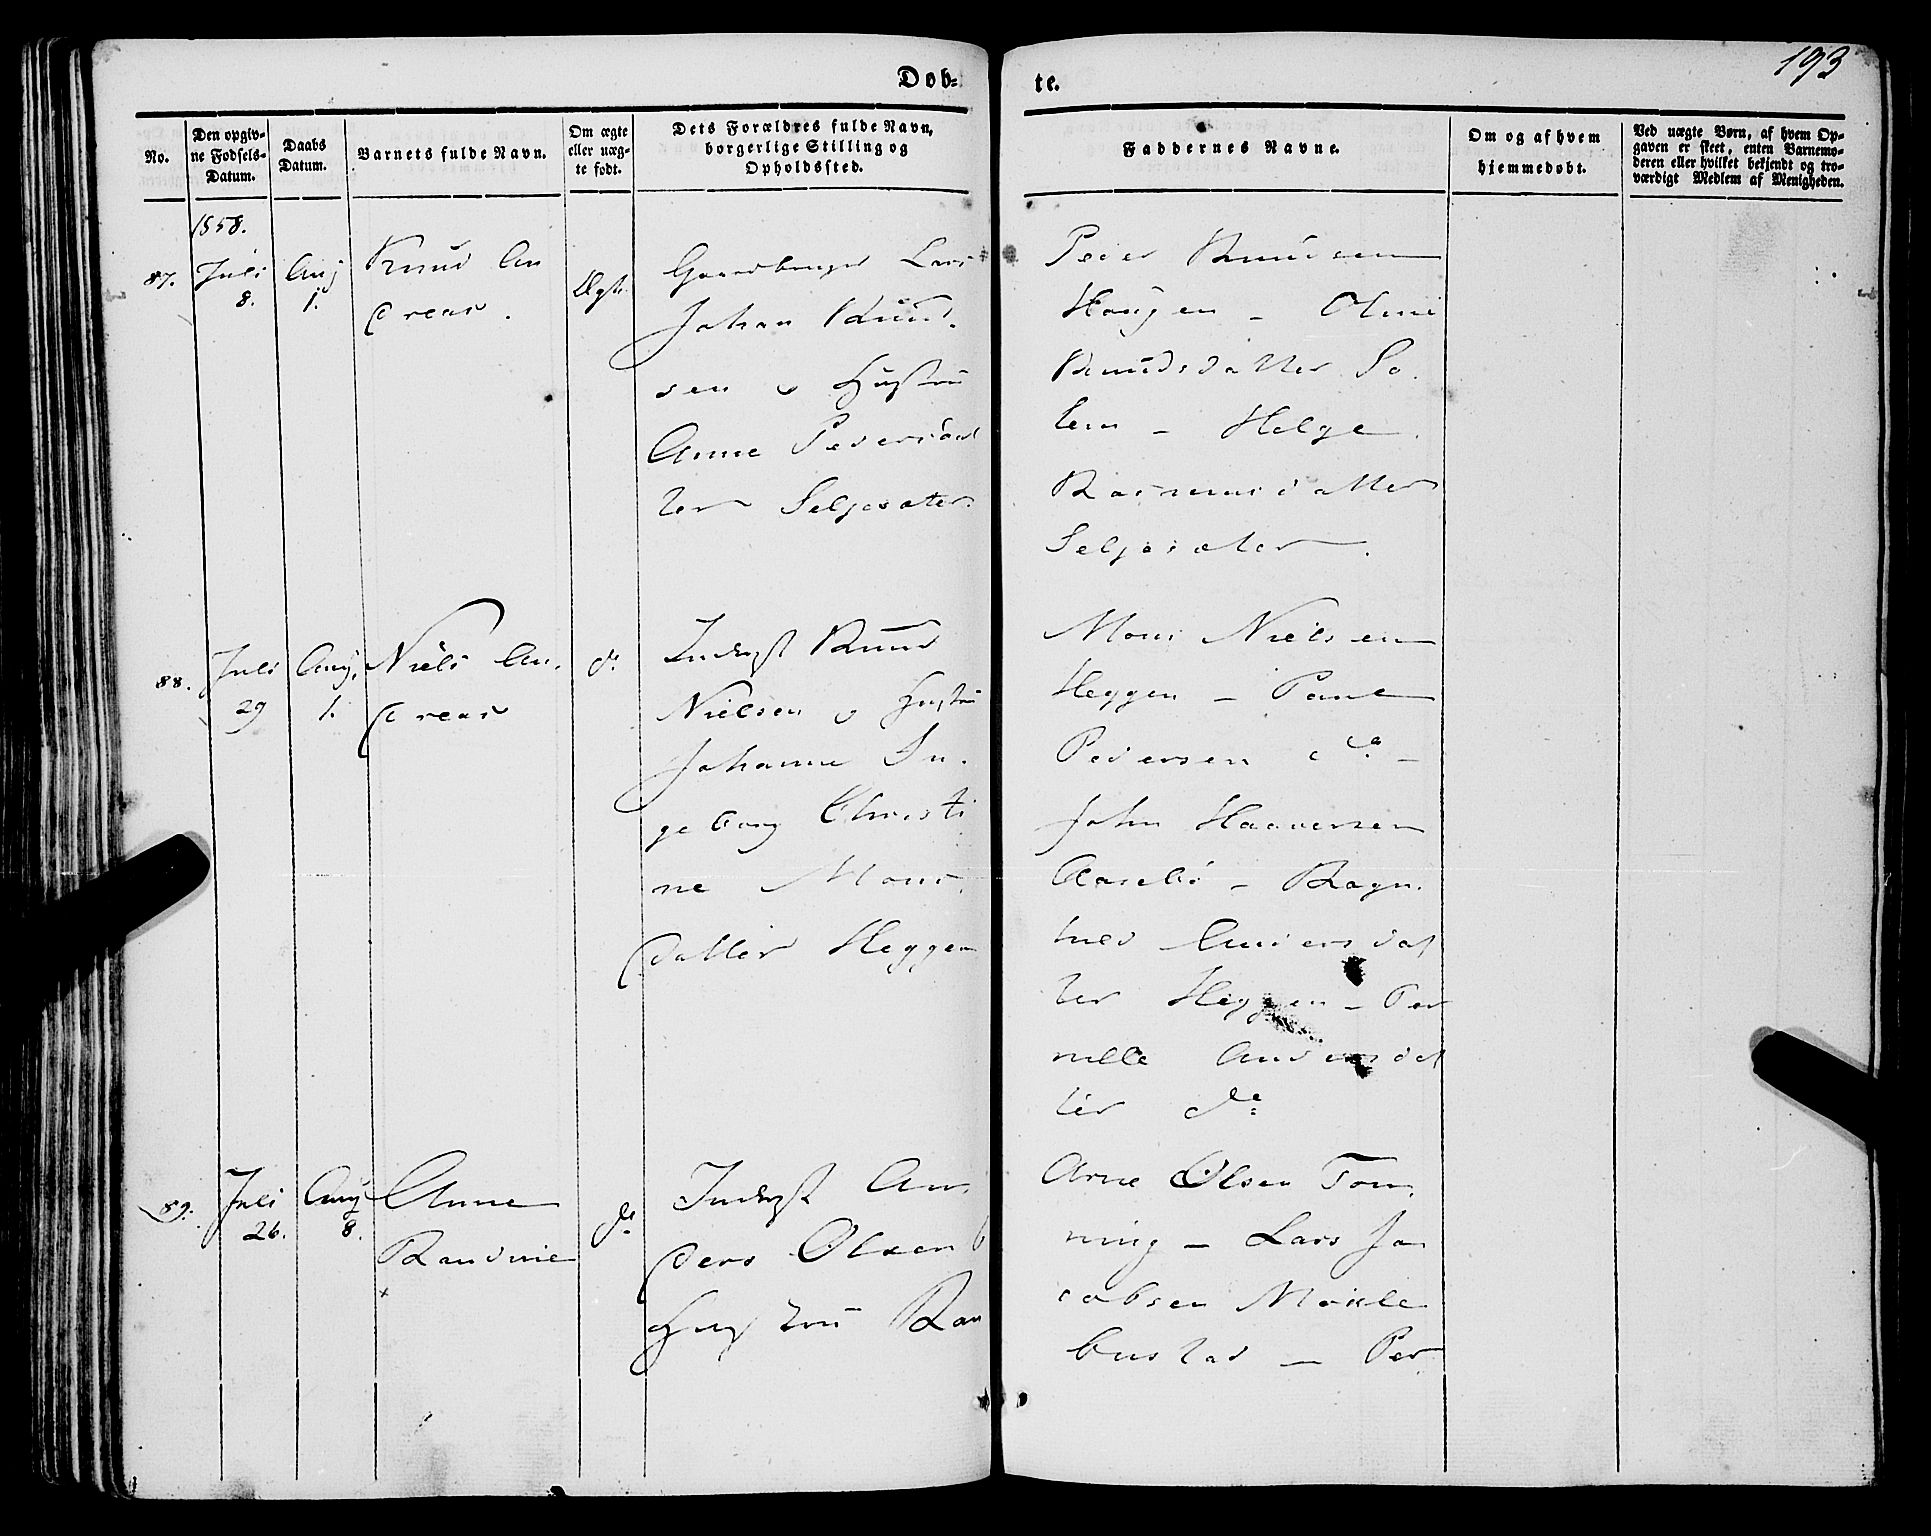 193
Dob-
te.
No.
Den opgiv-
ne Fødsels-
Datum.
Daabs
Datum.
Barnets fulde Navn.
Om ægte
eller uæg-
te født.
Dets Forældres fulde Navn,
borgerlige Stilling og
Opholdssted.
Faddernes Navne.
Om og af hvem
hjemmedøbt.
Ved uægte Børn, af hvem Op-
gaven er skeet, enten Barnemo-
deren eller hvilket bekjendt og tro-
værdigt Medlem af Menigheden.
1858.
87.
Juli
8.
Aug
1.
Knud An
dreas.
Ægte
Gaardbruger Lars
Johan Knud-
sen & Hustru
Anne Pedersdat
ter Seljesæter.
Peder Knudsen
Haugen - Oline
Knudsdatter So
lem - Helge
Rasmusdatter
Seljesæter.
88.
Juli
29
Aug.
1.
Niels An-
dreas
do
Inderst Knud
Nielsen & Hustru
Johanne In-
geborg Christi
ne Mons-
datter Heggen
Mons Nielsen
Heggen - Paul
Pedersen do -
John Haaversen
Aasebö - Ragn-
hild Andersdat
ter Heggen - Per
nille Andersdat
ter do
89.
Juli
26.
Aug
8.
Anne
Randine
x
do
Inderst An-
ders Olsen &
Hustru Ran
Arne Olsen Tom-
ning - Lars Ja
cobsen Mokle
bustad - Per